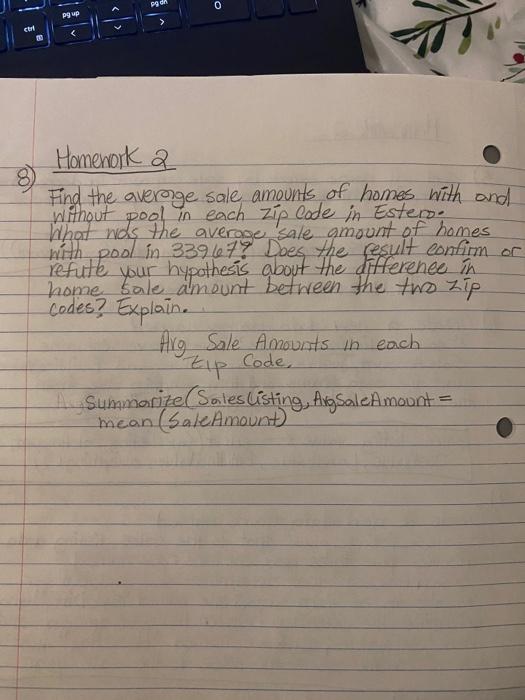 pg up
pg dn
0
ctrl
Homework 2
8) Find the average sale amounts of homes with and
without pool in each zip code in Estero.
What was the average sale amount of homes
with pool in 33967? Does the result confirm or
refute your hypothesis about the difference in
home sale amount between the two zip
codes? Explain.
Avg Sale Amounts in each
Zip Code.
Summarize(SalesListing, AvgSaleAmount =
mean(SaleAmount)